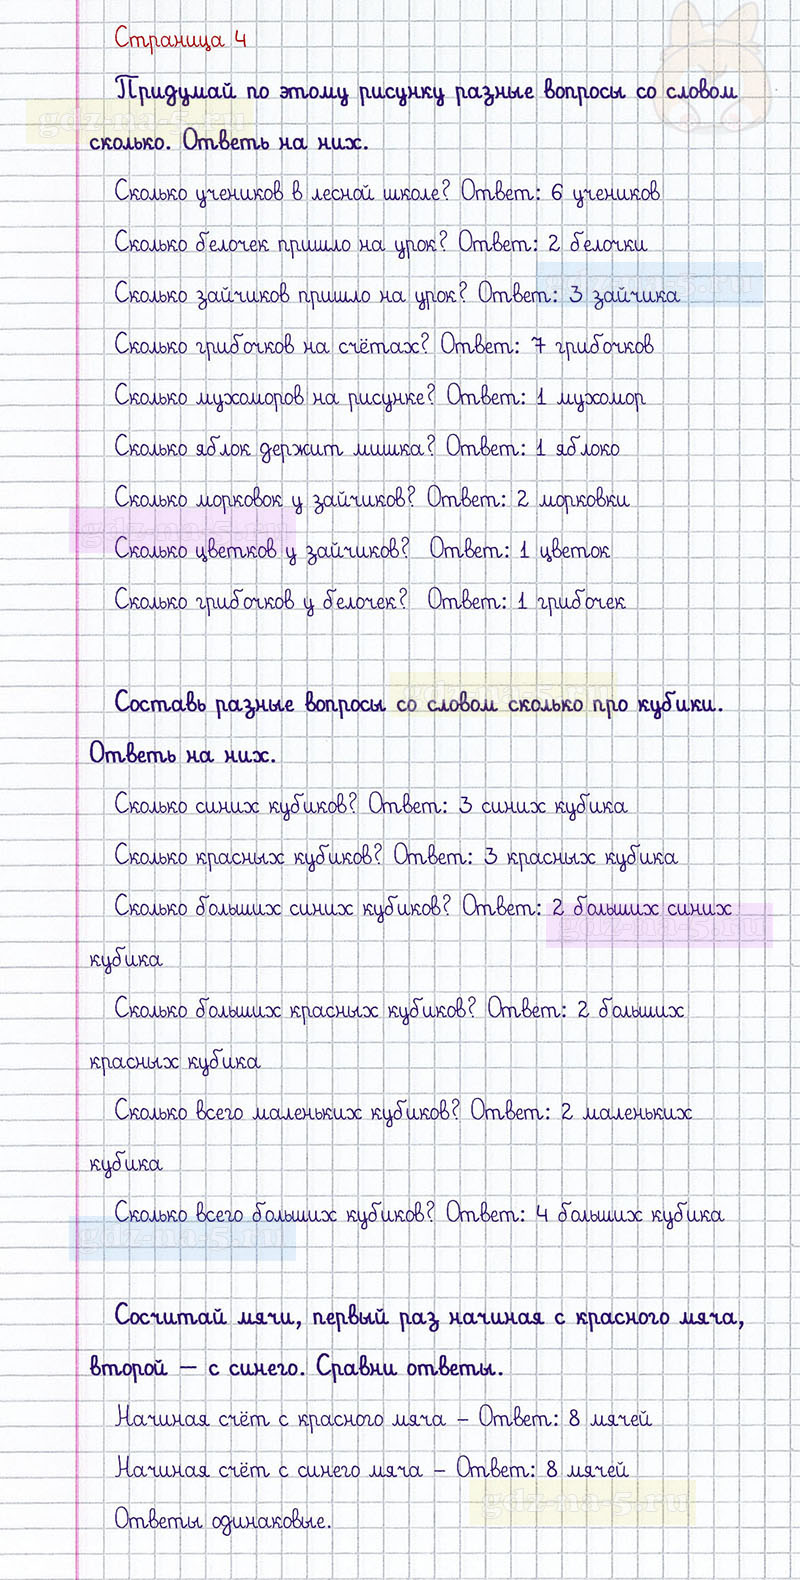 Страница 4
Придумай по этому рисунку разные вопросы со словом
сколько. Ответь на них.
Сколько учеников в лесной школе? Ответ: 6 учеников
Сколько белочек пришло на урок? Ответ: 2 белочки
Сколько зайчиков пришло на урок? Ответ: 3 зайчика
Сколько грибочков на счётах? Ответ: 7 грибочков
Сколько мухоморов на рисунке? Ответ: 1 мухомор
Сколько яблок держит мишка? Ответ: 1 яблоко
Сколько морковок у зайчиков? Ответ: 2 морковки
Сколько цветков у зайчиков? Ответ: 1 цветок
Сколько грибочков у белочек? Ответ: 1 грибочек
Составь разные вопросы со словом сколько про кубики.
Ответь на них.
Сколько синих кубиков? Ответ: 3 синих кубика
Сколько красных кубиков? Ответ: 3 красных кубика
Сколько больших синих кубиков? Ответ: 2 больших синих
кубика
Сколько больших красных кубиков? Ответ: 2 больших
красных кубика
Сколько всего маленьких кубиков? Ответ: 2 маленьких
кубика
Сколько всего больших кубиков? Ответ: 4 больших кубика
Сосчитай мячи, первый раз начиная с красного мяча,
второй — с синего. Сравни ответы.
Начиная счёт с красного мяча – Ответ: 8 мячей
Начиная счёт с синего мяча – Ответ: 8 мячей
Ответы одинаковые.
gdz-na-5.ru
gdz-na-5.ru
gdz-na-5.ru
gdz-na-5.ru
gdz-na-5.ru
gdz-na-5.ru
gdz-na-5.ru